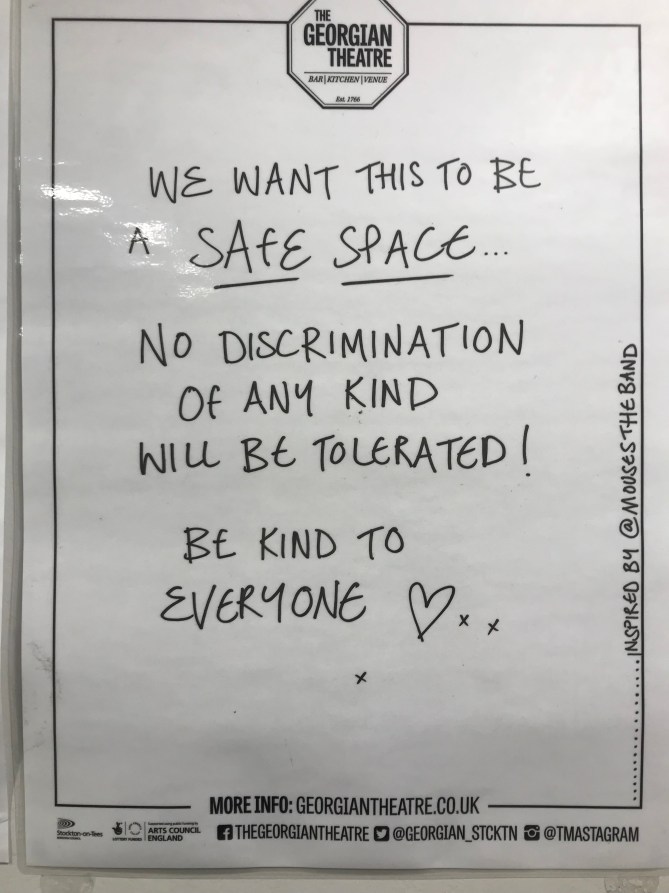 THE
GEORGIAN
THEATRE
BAR | KITCHEN | VENUE
Est. 1766
WE WANT THIS TO BE
A SAFE SPACE...
NO DISCRIMINATION
OF ANY KIND
WILL BE TOLERATED!
BE KIND TO
EVERYONE ♡ x x
x
INSPIRED BY @MOUSESTHEBAND
MORE INFO: GEORGIANTHEATRE.CO.UK
Stockton-on-Tees
LOTTERY FUNDED
ARTS COUNCIL
ENGLAND
THEGEORGIANTHEATRE @GEORGIAN_STCKTN @TMASTAGRAM